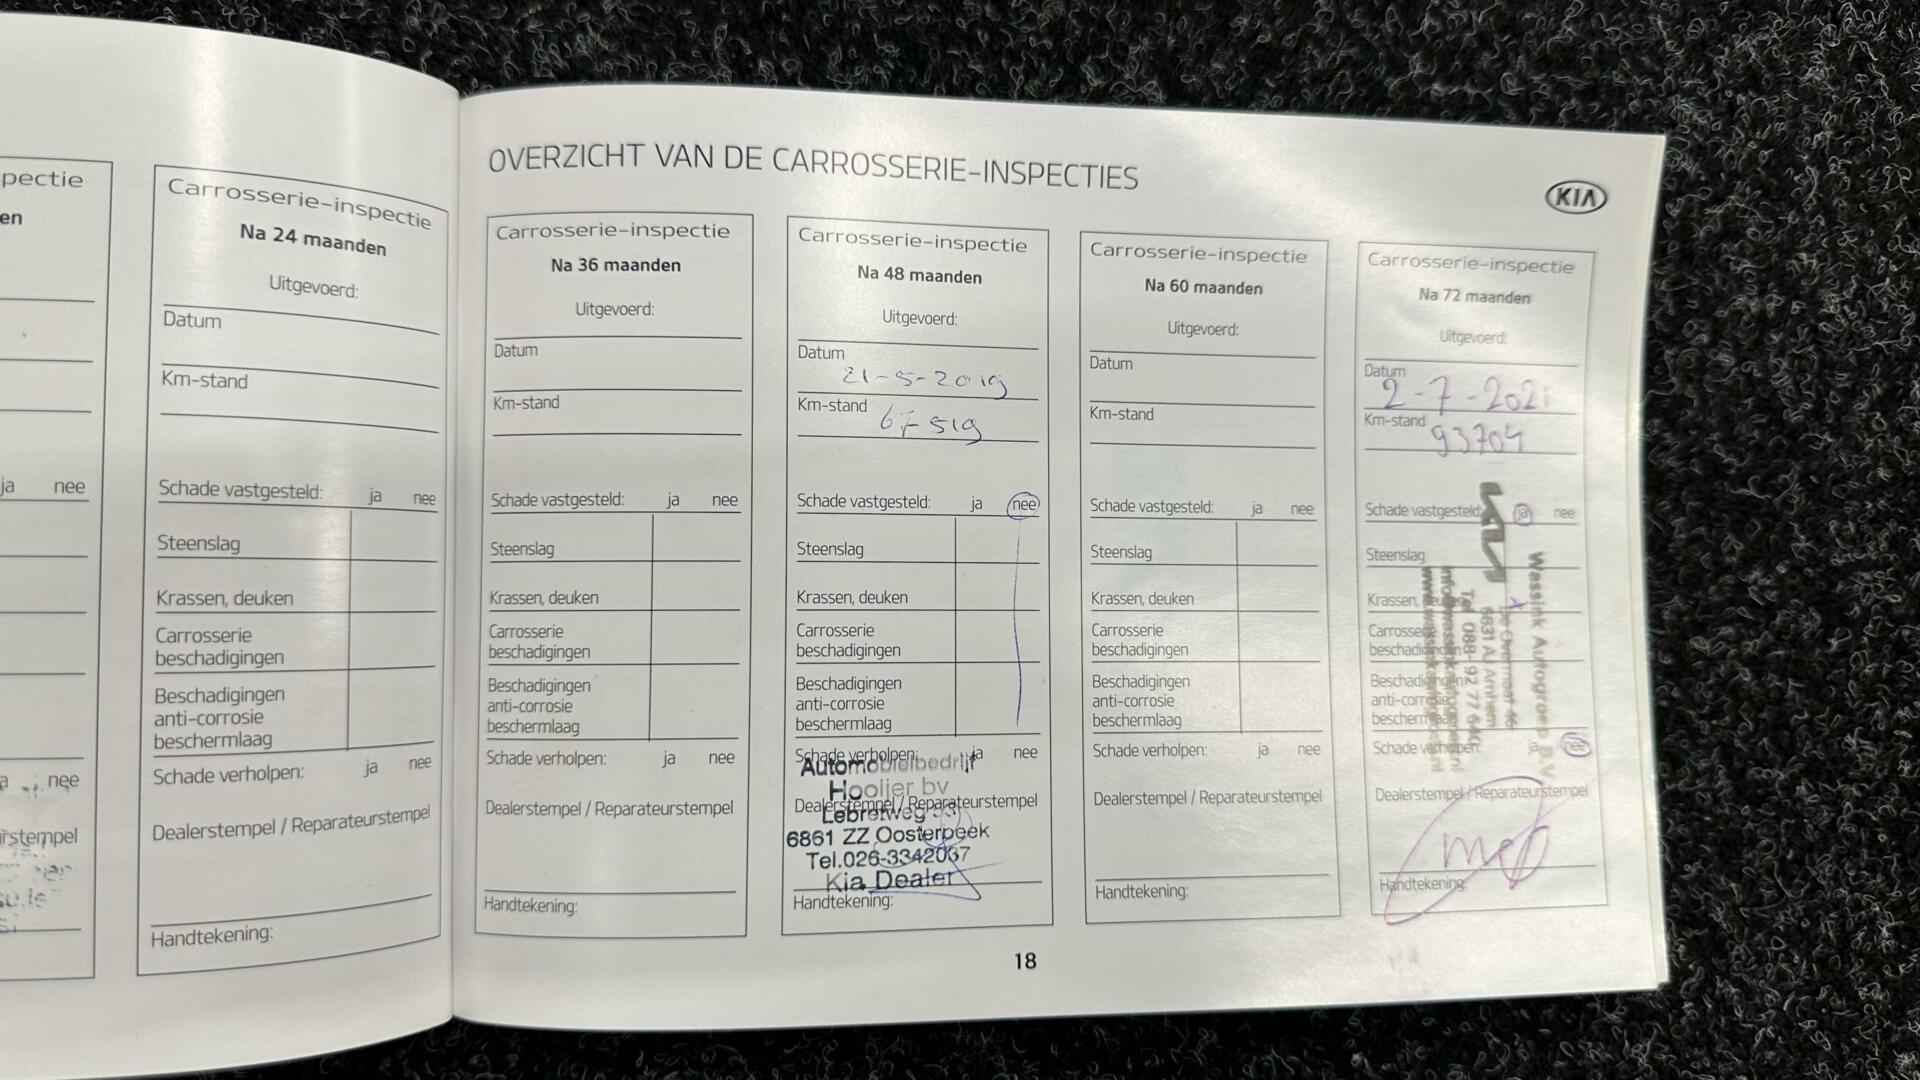 pectie
en
ja nee
nee
rstempel
Carrosserie-inspectie
Na 24 maanden
Uitgevoerd:
Datum
Km-stand
Schade vastgesteld: ja nee
Steenslag
Krassen, deuken
Carrosserie
beschadigingen
Beschadigingen
anti-corrosie
beschermlaag
Schade verholpen: ja nee
Dealerstempel / Reparateurstempel
Handtekening:
OVERZICHT VAN DE CARROSSERIE-INSPECTIES
KIA
Carrosserie-inspectie
Na 36 maanden
Uitgevoerd:
Datum
Km-stand
Schade vastgesteld: ja nee
Steenslag
Krassen, deuken
Carrosserie
beschadigingen
Beschadigingen
anti-corrosie
beschermlaag
Schade verholpen: ja nee
Dealerstempel / Reparateurstempel
Handtekening:
Carrosserie-inspectie
Na 48 maanden
Uitgevoerd:
Datum
21-5-2019
Km-stand
67519
Schade vastgesteld: ja nee
Steenslag
Krassen, deuken
Carrosserie
beschadigingen
Beschadigingen
anti-corrosie
beschermlaag
Schade verholpen: ja nee
Automobielbedrijf
Hooijer bv
Dealerstempel / Reparateurstempel
Lebretweg
6861 ZZ Oosterbeek
Tel.026-3342067
Kia Dealer
Handtekening:
Carrosserie-inspectie
Na 60 maanden
Uitgevoerd:
Datum
Km-stand
Schade vastgesteld: ja nee
Steenslag
Krassen, deuken
Carrosserie
beschadigingen
Beschadigingen
anti-corrosie
beschermlaag
Schade verholpen: ja nee
Dealerstempel / Reparateurstempel
Handtekening:
Carrosserie-inspectie
Na 72 maanden
Uitgevoerd:
Datum
2-7-2021
Km-stand
93704
Schade vastgesteld: ja nee
Steenslag
Krassen, deuken
Carrosserie
beschadigingen
Beschadigingen
anti-corrosie
beschermlaag
Schade verholpen: ja nee
Dealerstempel / Reparateurstempel
Handtekening:
KIA
Wassink Autogroep B.V.
Arnhem
18